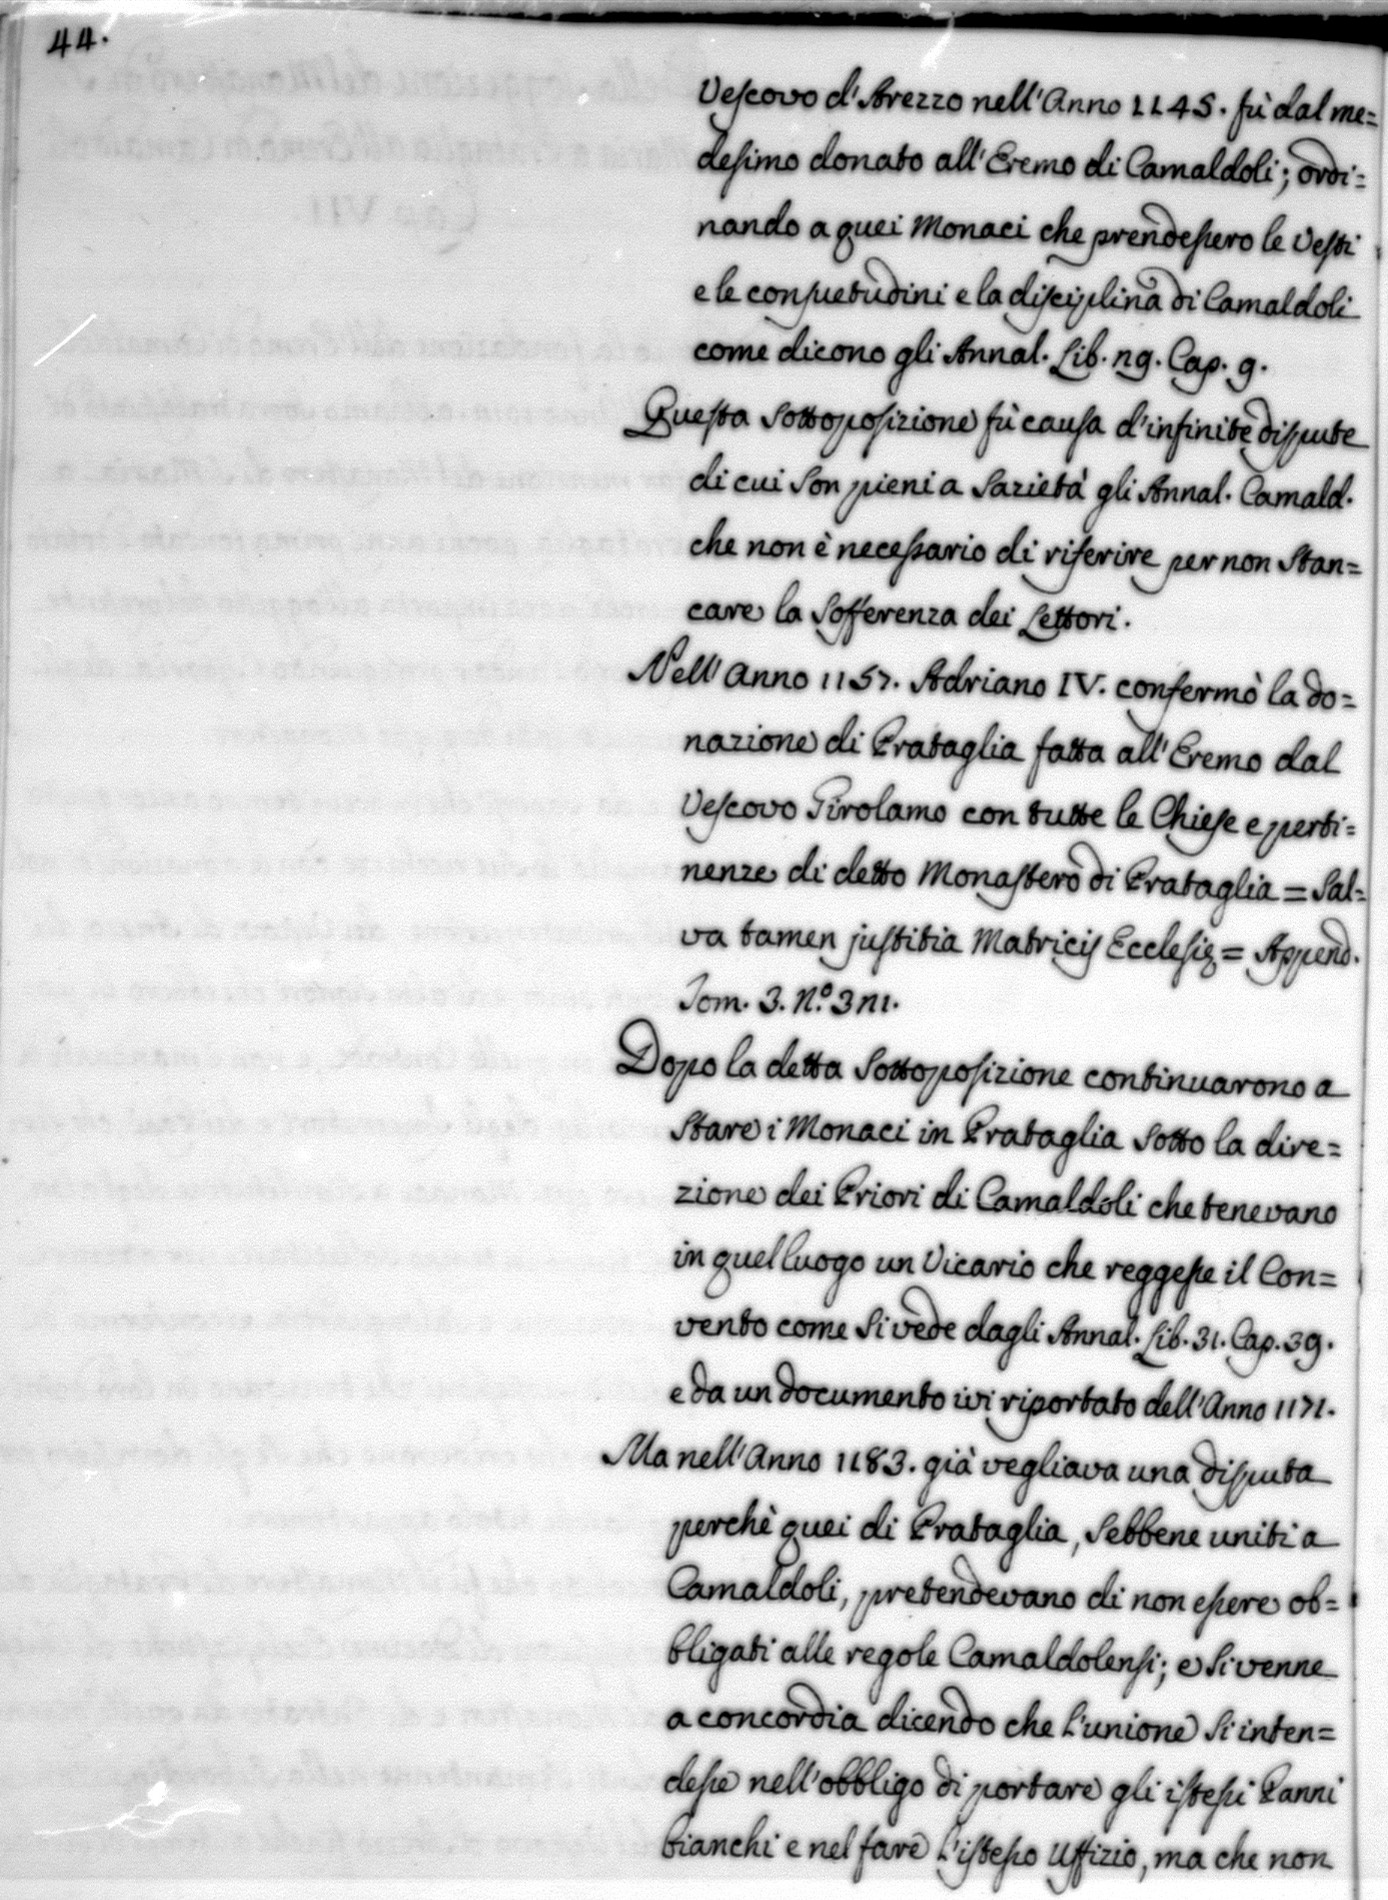 44.
Vescovo d'Arezzo nell'Anno 1145. fù dal me=
desimo donato all'Eremo di Camaldoli; ordi=
nando a quei Monaci che prendessero le Vesti
e le consuetudini e la disciplina di Camaldoli
come dicono gli Annal. Lib. 29. Cap. 9.
Questa Sottoposizione fù causa d'infinite dispute
di cui Son pieni a Sazietà gli Annal. Camald.
che non è necessario di riferire per non Stan=
care la Sofferenza dei Lettori.
Nell'Anno 1157. Adriano IV. confermò la do=
nazione di Prataglia fatta all'Eremo dal
Vescovo Girolamo con tutte le Chiese e perti=
nenze di detto Monastero di Prataglia = Sal=
va tamen justitia Matricis Ecclesię = Append.
Tom. 3. N.º 321.
Dopo la detta Sottoposizione continuarono a
Stare i Monaci in Prataglia Sotto la dire=
zione dei Priori di Camaldoli che tenevano
in quel luogo un Vicario che reggesse il Con=
vento come Si vede dagli Annal. Lib. 31. Cap. 39.
e da un documento ivi riportato dell'Anno 1171.
Ma nell'Anno 1183. già vegliava una disputa
perchè quei di Prataglia, Sebbene uniti a
Camaldoli, pretendevano di non essere ob=
bligati alle regole Camaldolensi; e Si venne
a concordia dicendo che l'unione Si inten=
desse nell'obbligo di portare gli istessi Panni
bianchi e nel fare l'istesso Uffizio, ma che non